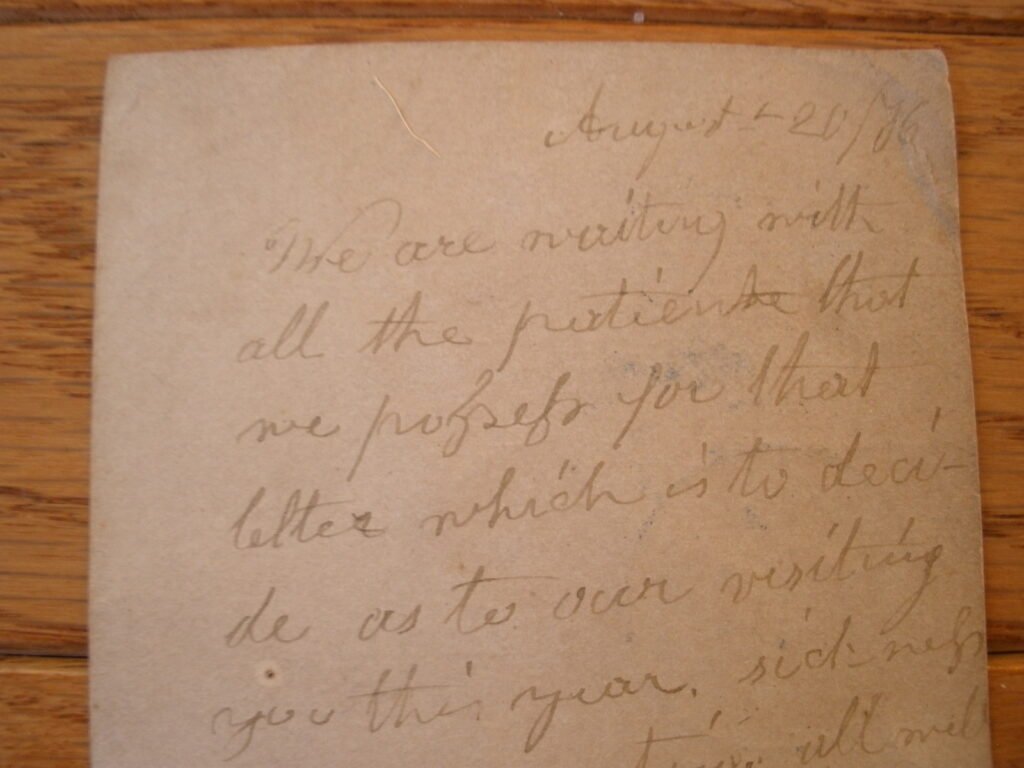 August 20/86
We are waiting with
all the patience that
we possess for that
letter which is to deci-
de as to our visiting
you this year. sickness
all well